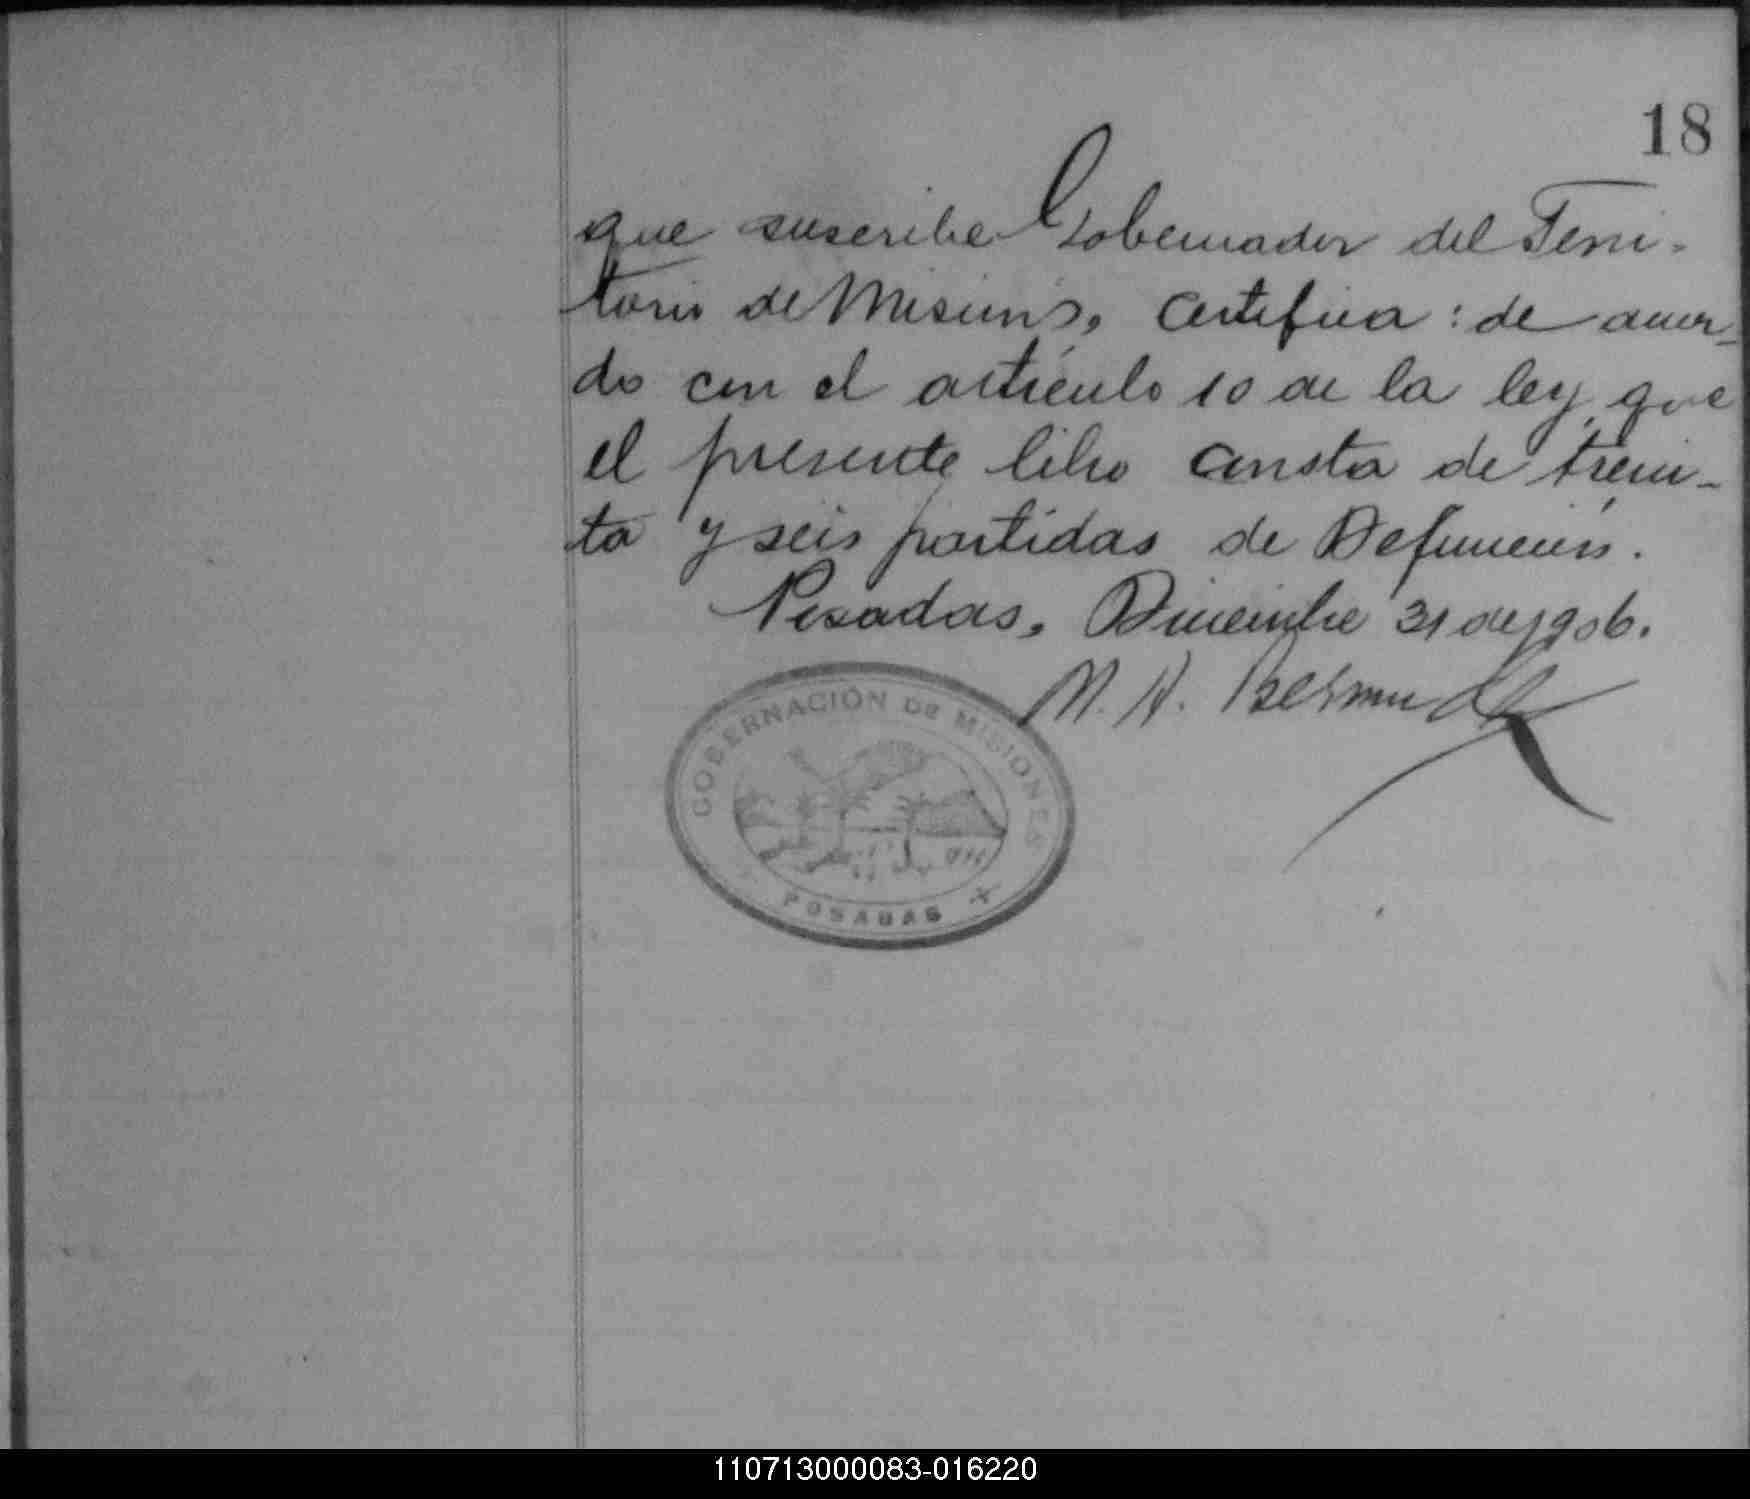 18
que suscribe Gobernador del Terri-
torio de Misiones, certifica: de acuer-
do con el artículo 10 de la ley, que
el presente libro consta de trein-
ta y seis partidas de Defunción.
Posadas, Diciembre 31 de 1906.
M. A. Bermudez
GOBERNACIÓN DE MISIONES
POSADAS
110713000083-016220